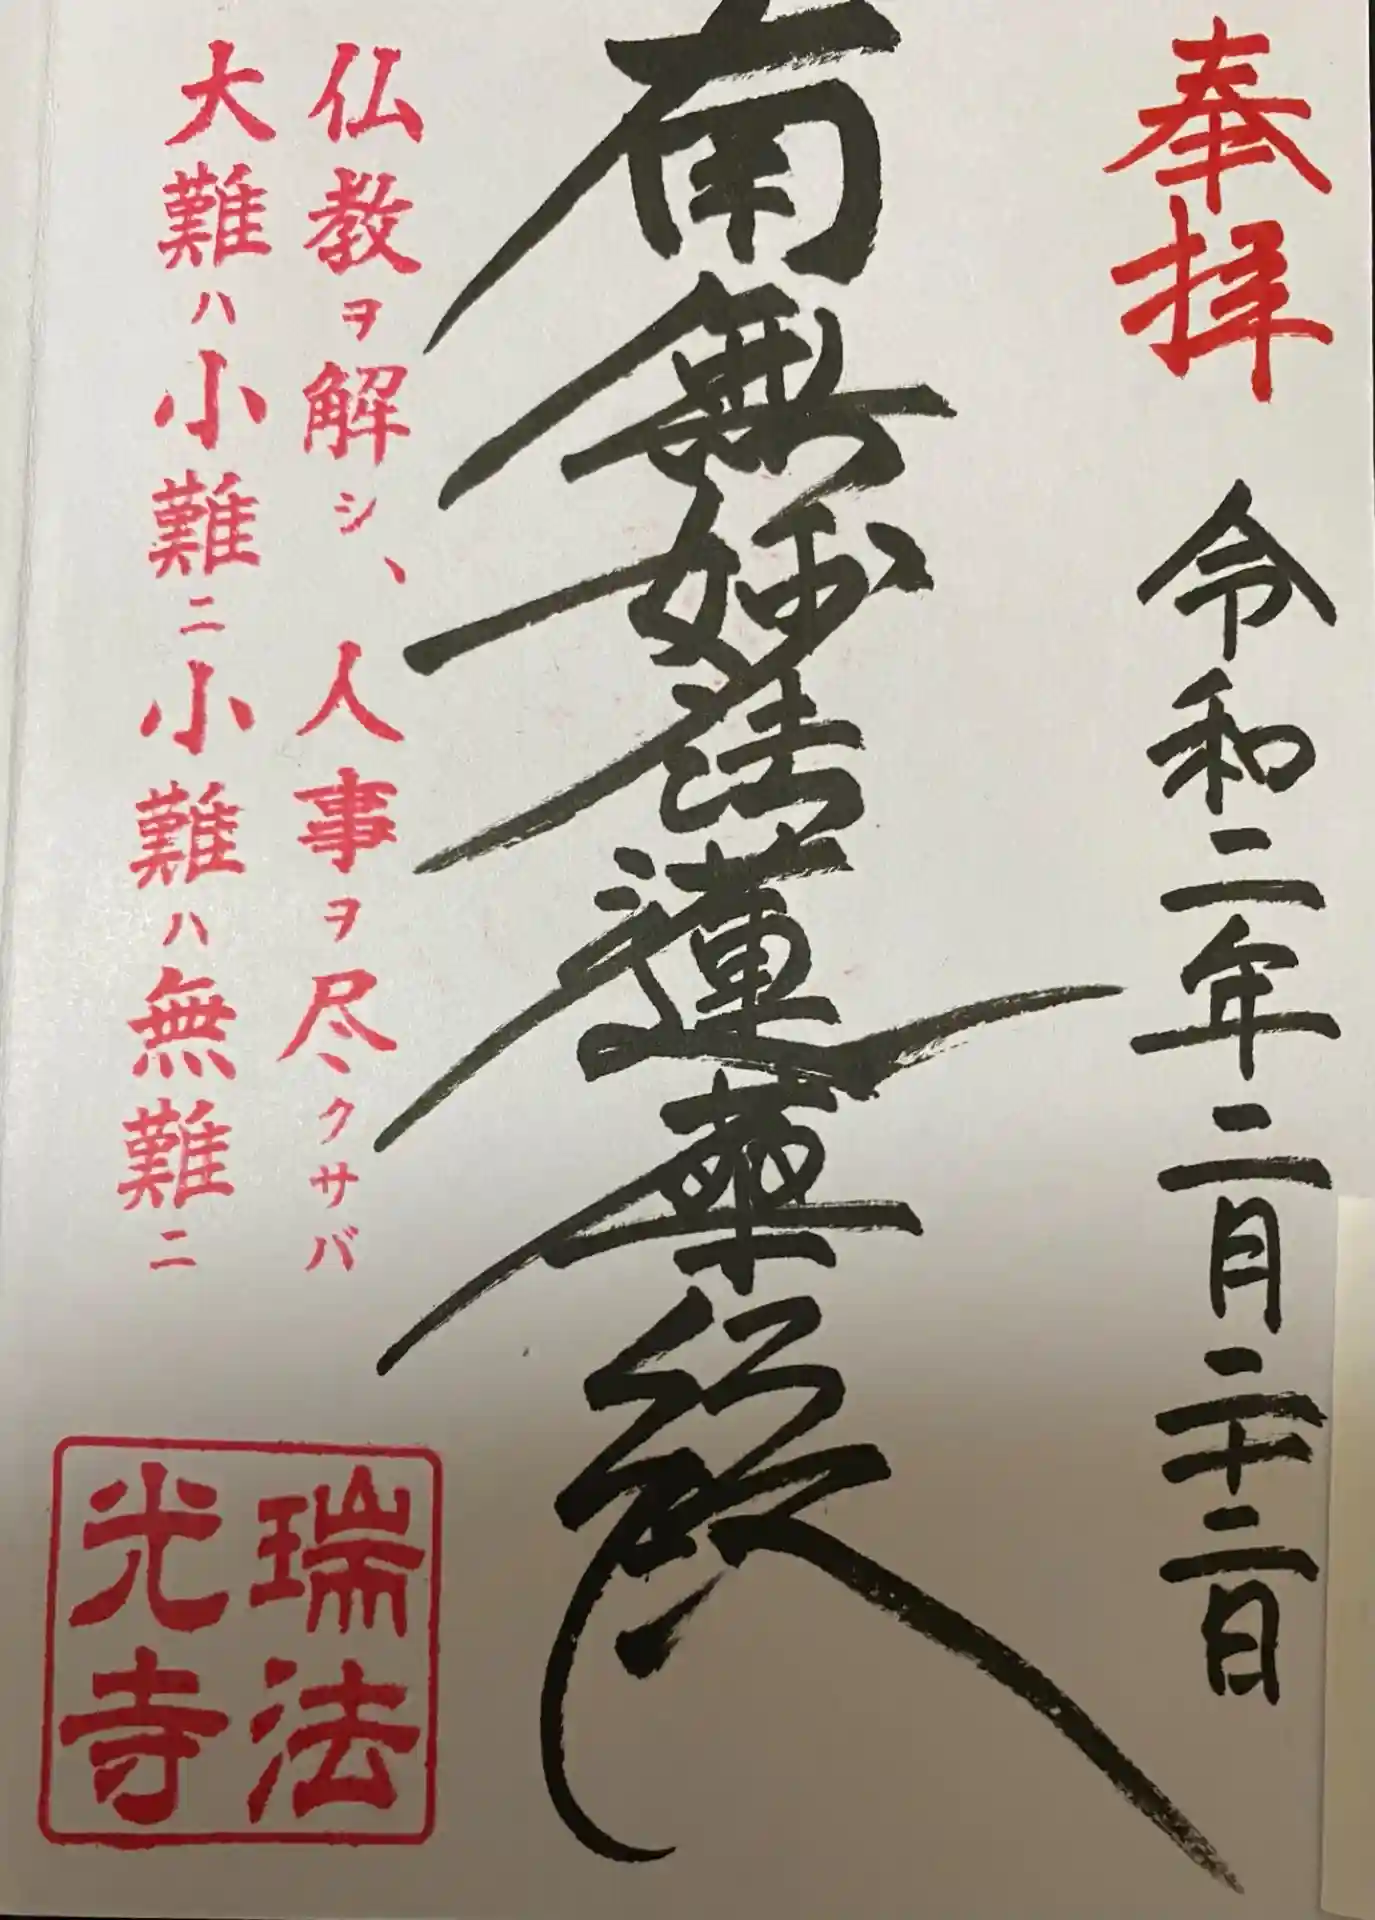 奉拝
令和二年二月二十二日
南無妙法蓮華経
仏教ヲ解シ、人事ヲ尽クサバ
大難ハ小難ニ小難ハ無難ニ
瑞法
光寺